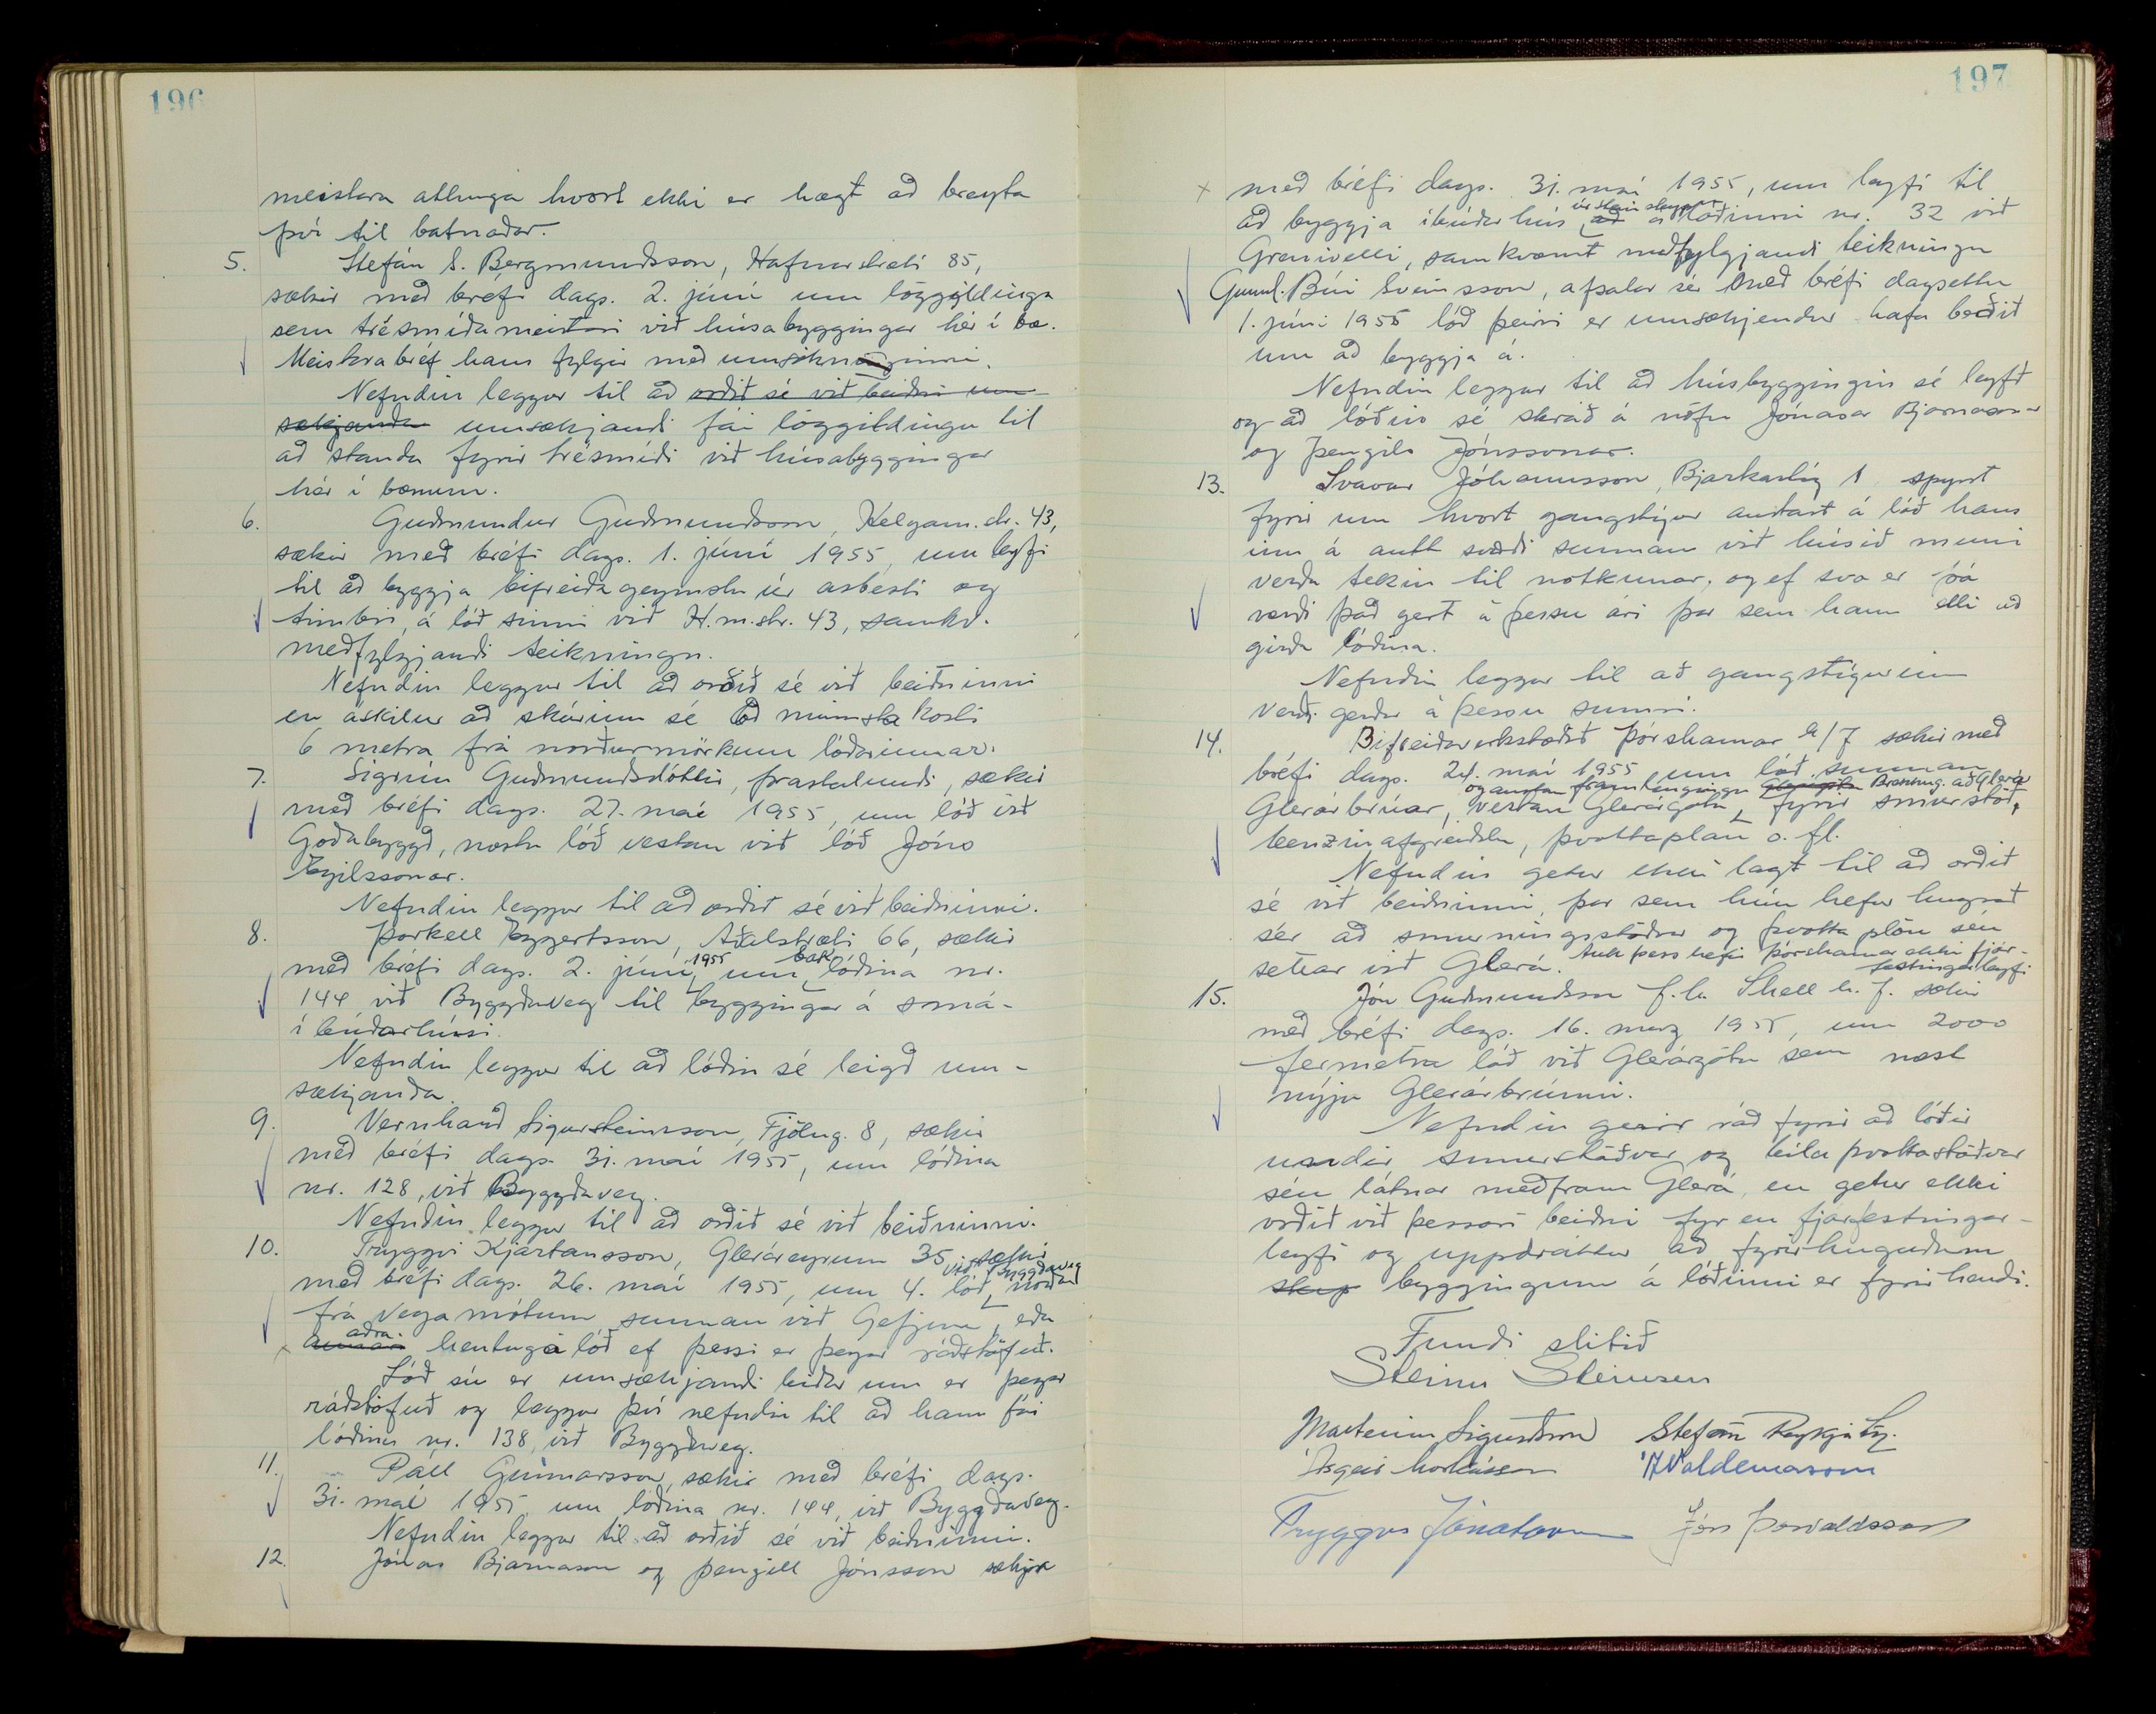 196
meistara athuga hvort ekki er hægt að breyta
því til batnaðar.
5. Stefán S. Bergmundsson, Hafnarstræti 85,
sækir með bréfi dags. 2. júní um löggildingu
sem trésmíðameistari við húsabyggingar hér í bæ.
Meistrabréf hans fylgir með umsókninni.
Nefndin leggur til að orðið sé við beiðni um-
sækjanda umsækjandi fái löggildingu til
að standa fyrir trésmíði við húsabyggingar
hér í bænum.
6. Guðmundur Guðmundsson, Helgam.str. 43,
sækir með bréfi dags. 1. júní 1955, um leyfi
til að byggja bifreiðageymslu úr asbesti og
timbri, á lóð sinni við H.m.str. 43, samkv.
meðfylgjandi teikningu.
Nefndin leggur til að orðið sé við beiðninni
en áskilur að skúrinn sé að minnsta kosti
6 metra frá norðurmörkum lóðarinnar.
7. Sigrún Guðmundsdóttir, Þrastalundi, sækir
með bréfi dags. 27. maí 1955, um lóð við
Goðabyggð, næstu lóð vestan við lóð Jóns
Egilssonar.
Nefndin leggur til að orðið sé við beiðninni.
8. Þorkell Eggertsson, Aðalstræti 66, sækir
með bréfi dags. 2. júní, 1955 um lóðina nr.
144 við Byggðaveg til byggingar á smá-
íbúðarhúsi.
Nefndin leggur til að lóðin sé leigð um-
sækjanda.
9. Vernharð Sigursteinsson, Fjólug. 8, sækir
með bréfi dags. 31. maí 1955, um lóðina
nr. 128, við Byggðaveg.
Nefndin leggur til að orðið sé við beiðninni.
10. Tryggvi Kjartansson, Gleráreyrum 35, sækir
með bréfi dags. 26. maí 1955, um 4. lóð við Byggðaveg norðan
frá vegamótum sunnan við Gefjunn, eða
aðra hentuga lóð ef þessi er þegar ráðstöfuð.
Lóð sú er umsækjandi biður um er þegar
ráðstöfuð og leggur því nefndin til að hann fái
lóðina nr. 138, við Byggðaveg.
11. Páll Gunnarsson, sækir með bréfi dags.
31. maí 1955 um lóðina nr. 144, við Byggðaveg.
Nefndin leggur til að orðið sé við beiðninni.
12. Jónas Bjarnason og Þengill Jónsson sækja
197
með bréfi dags. 31. maí 1955, um leyfi til
að byggja íbúðarhús úr steinsteypu á lóðinni nr. 32 við
Grenivelli, samkvæmt meðfylgjandi teikningu
Gunnl. Búi Sveinsson, afsalar sér með bréfi dagsettu
1. júní 1955 lóð þeirri er umsækjendur hafa beðið
um að byggja á.
Nefndin leggur til að húsbyggingin sé leyfð
og að lóðin sé skráð á nöfn Jónasar Bjarnasonar
og Þengils Jónssonar.
13. Svavar Jóhannsson, Bjarkarstíg 1 spyrst
fyrir um hvort gangstígur austast á lóð hans
inn á autt svæði sunnan við húsið muni
verða tekin til notkunar, og ef svo er þá
verði það gert á þessu ári þar sem hann ætli að
girða lóðina.
Nefndin leggur til að gangstígurinn
verði gerður á þessu sumri.
14. Bifreiðaverkstæðið Þórshamar h/f sækir með
bréfi dags. 24. maí 1955 um lóð sunnan
Glerárbrúar, vestan Glerárgötu, og austan framlengingu Brekkug. að Glerá fyrir smurstöð,
benzinafgreiðslu, þvottaplan o. fl.
Nefndin getur ekki lagt til að orðið
sé við beiðninni, þar sem hún hefur hugsað
sér að smurningsstöðvar og þvottaplön séu
settar við Glerá. Auk þess hefir Þórshamar ekki fjár-
festingarleyfi
15. Jón Guðmundsson f.h. Shell h.f. sækir
með bréfi dags. 16. marz 1955, um 2000
fermetra lóð við Glerárgötu sem næst
nýju Glerárbrúnni.
Nefndin gerir ráð fyrir að lóðir
undir smurstöðvar og bílaþvottastöðvar
séu látnar meðfram Glerá, en getur ekki
orðið við þessari beiðni fyr en fjárfestingar-
leyfi og uppdráttur að fyrirhuguðum
skip byggingum á lóðinni er fyrir hendi.
Fundi slitið
Steinn Steinsen
Marteinn Sigurðsson Stefán Reykjalín
Ásgeir Markússon Á Valdemarsson
Tryggvi Jónatansson Jón Þorvaldsson